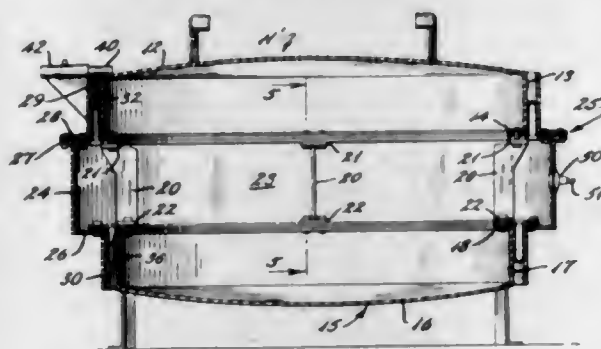 42 40 12 11 13
29 32 5
28 14 25
27 21 21 21
24 20 23 20 20 50
51
22 22 22
26 18
30 36 5 17
15 16